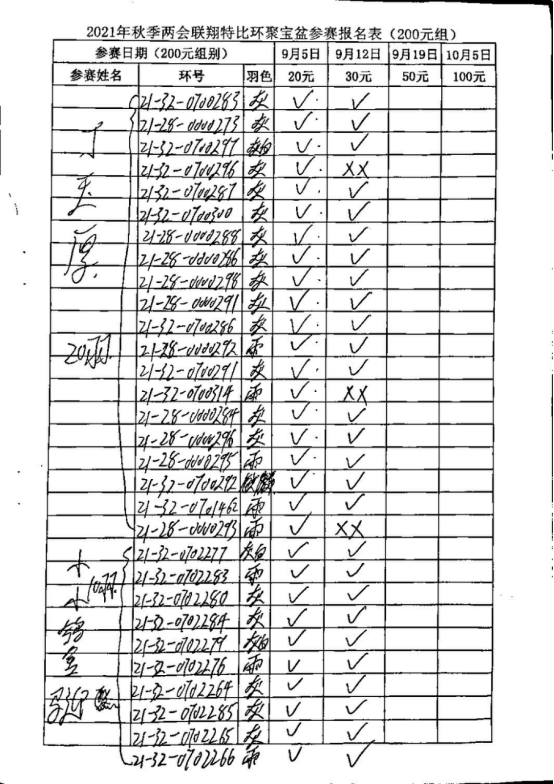 2021年秋季两会联翔特比环聚宝盆参赛报名表（200元组）
参赛日期（200元组别） 9月5日 9月12日 9月19日 10月5日
参赛姓名 环号 羽色 20元 30元 50元 100元
21-32-0700283 灰 ✓ ✓
21-28-0000273 灰 ✓ ✓
21-32-0700297 ✓ ✓
21-32-0700296 灰 ✓ XX
21-32-0700287 灰 ✓ ✓
21-32-0700300 灰 ✓ ✓
21-28-0000288 灰 ✓ ✓
21-28-0000286 灰 ✓ ✓
21-28-0000298 灰 ✓ ✓
21-28-0000291 灰 ✓ ✓
21-32-0700286 灰 ✓ ✓
20羽 21-28-0000292 雨 ✓ ✓
21-32-0700291 灰 ✓ ✓
21-32-0700314 雨 ✓ XX
21-28-0000284 灰 ✓ ✓
21-28-0000296 灰 ✓ ✓
21-28-0000295 雨 ✓ ✓
21-32-0700292 ✓ ✓
21-32-0701462 雨 ✓ ✓
21-28-0000293 雨 ✓ XX
21-32-0702277 灰白 ✓ ✓
10羽 21-32-0702283 雨 ✓ ✓
21-32-0702280 灰 ✓ ✓
21-32-0702284 灰 ✓ ✓
21-32-0702279 ✓ ✓
21-32-0702276 雨 ✓ ✓
21-32-0702264 灰 ✓ ✓
21-32-0702285 灰 ✓ ✓
21-32-0702265 灰 ✓ ✓
21-32-0702266 雨 ✓ ✓